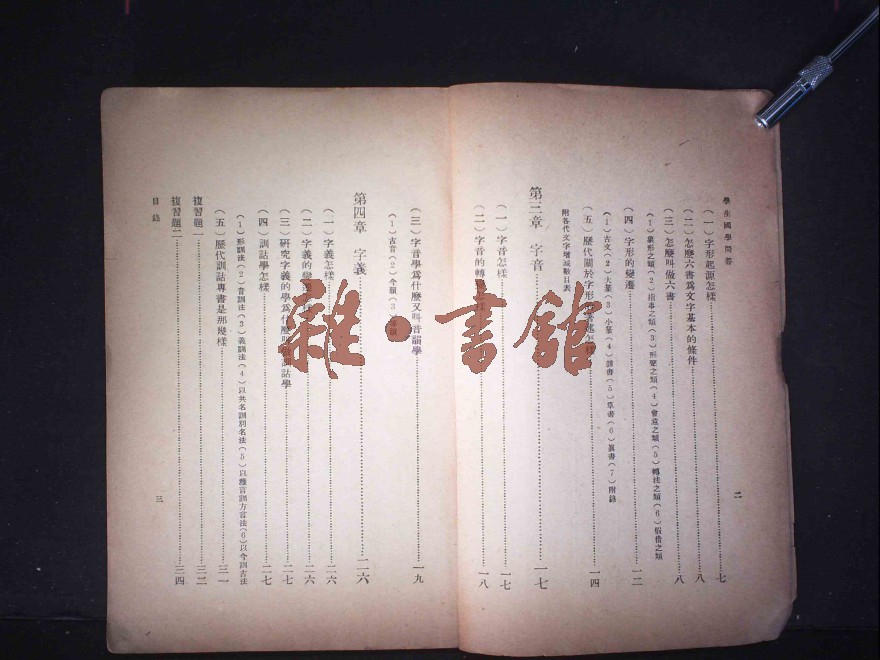 學生國學問答
二
(一)字形起源怎樣……七
(二)怎麼六書爲文字基本的條件……八
(三)怎麼叫做六書……八
(1)象形之類(2)指事之類(3)形聲之類(4)會意之類(5)轉注之類(6)假借之類
(四)字形的變遷……一二
(1)古文(2)大篆(3)小篆(4)隸書(5)草書(6)眞書(7)附錄
(五)歷代關於字形……一四
附各代文字增減數目表
第三章 字音……一七
(一)字音怎樣……一七
(二)字音的轉……一八
(三)字音學爲什麼又叫音韻學……一九
(1)古音(2)今韻(3)
第四章 字義……二六
(一)字義怎樣……二六
(二)字義的變……二六
(三)研究字義的學爲什麼叫訓詁學……二七
(四)訓詁學怎樣……二七
(1)形訓法(2)音訓法(3)義訓法(4)以共名訓別名法(5)以雅言訓方言法(6)以今訓古法
(五)歷代訓詁專書是那幾樣……三一
複習題一……三二
複習題二……三四
目錄
三
雜·書館